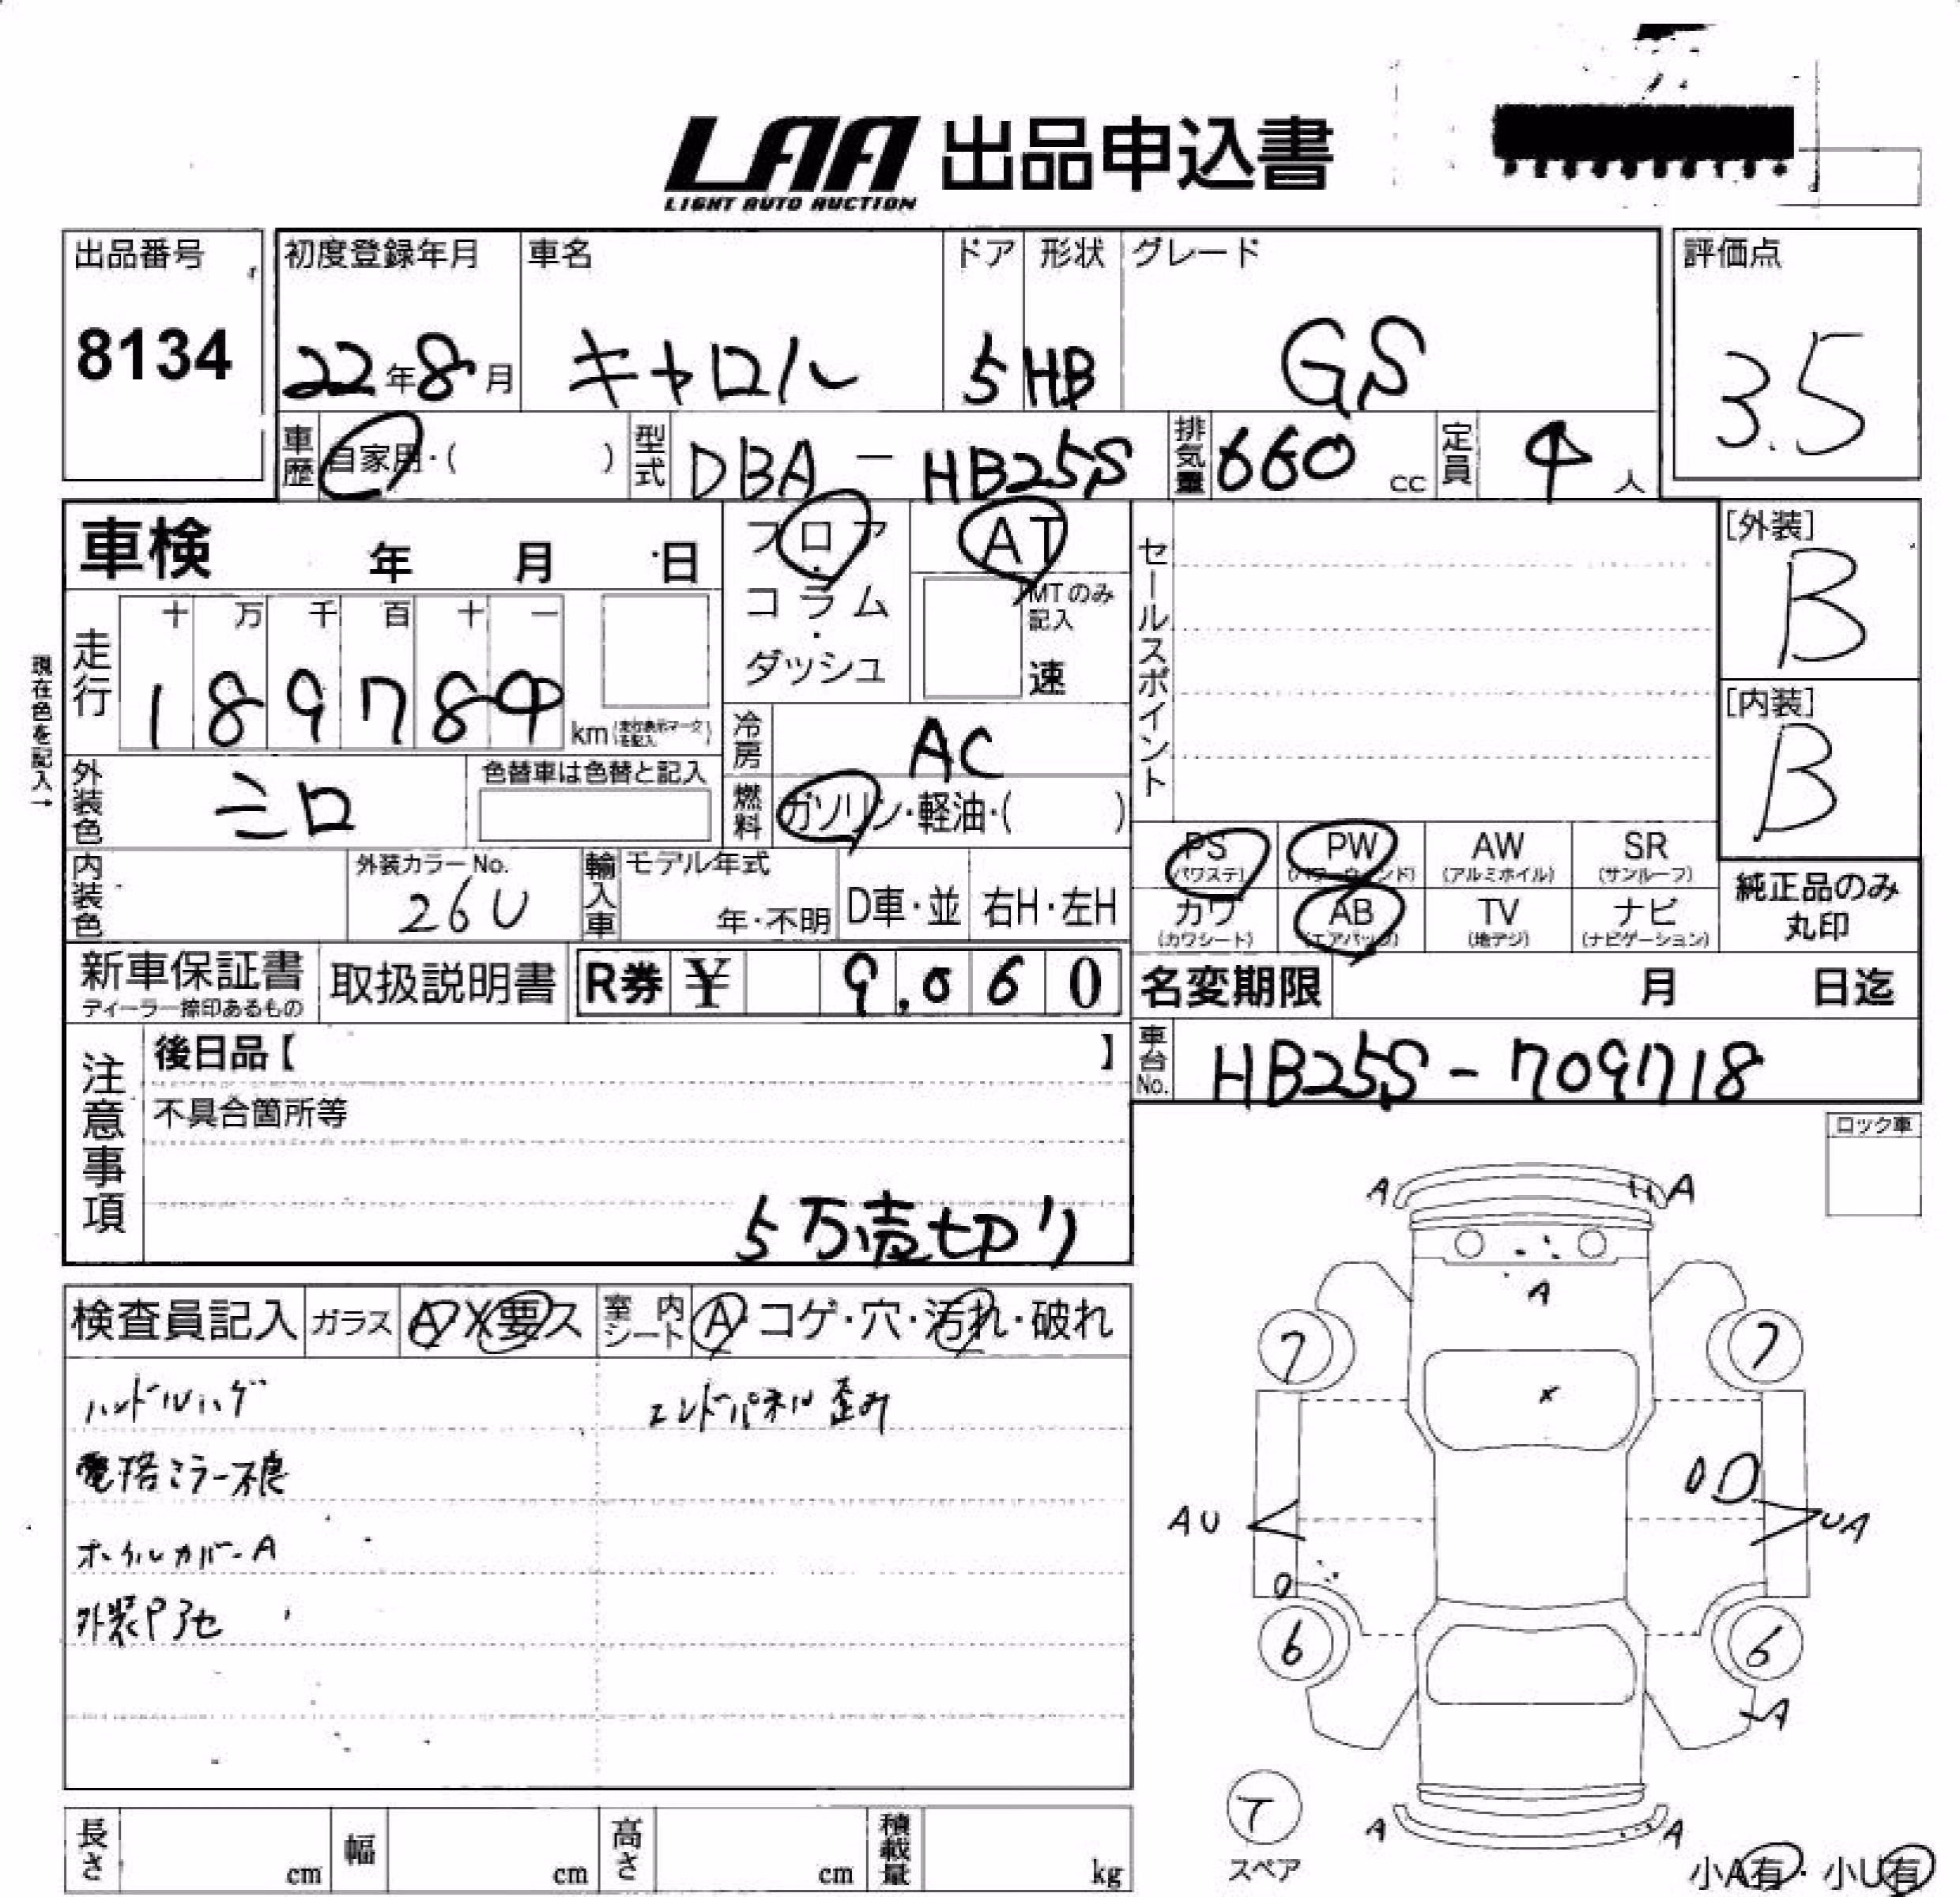 LAA 出品申込書
LIGHT AUTO AUCTION
出品番号
8134
初度登録年月 車名 ドア 形状 グレード
22年8月 キャロル 5 HB GS
評価点
3.5
車歴 自家用・( ) 型式 DBA - HB25S 排気量 660 cc 定員 4 人
車検 年 月 日
フロア・コラム・ダッシュ
AT
MTのみ記入
速
セールスポイント
[外装]
B
[内装]
B
現在色を記入→
走行 十 万 千 百 十 一
1 8 9 7 8 4 km (走行表示マークを記入)
冷房 AC
燃料 ガソリン・軽油・( )
外装色 シロ 色替車は色替と記入
PS (パワステ) PW (パワーウィンド) AW (アルミホイル) SR (サンルーフ)
カワ (カワシート) AB (エアバッグ) TV (地デジ) ナビ (ナビゲーション)
純正品のみ丸印
内装色 外装カラーNo. 26U 輸入車 モデル年式 年・不明 D車・並 右H・左H
新車保証書 ディーラー捺印あるもの 取扱説明書 R券 ¥ 9,060
名変期限 月 日迄
車台No. HB25S-709718
注意事項
後日品【 】
不具合箇所等
5万売切り
ロック車
検査員記入 ガラス A X 要ス 室内シート A・コゲ・穴・汚れ・破れ
ハンドルハゲ エンドパネル歪み
電格ミラー不良
ホイルカバーA
A A
A
7 7
X
D
AU UA
6 6
A
A A
スペア
小A有・小U有
長さ cm 幅 cm 高さ cm 積載量 kg